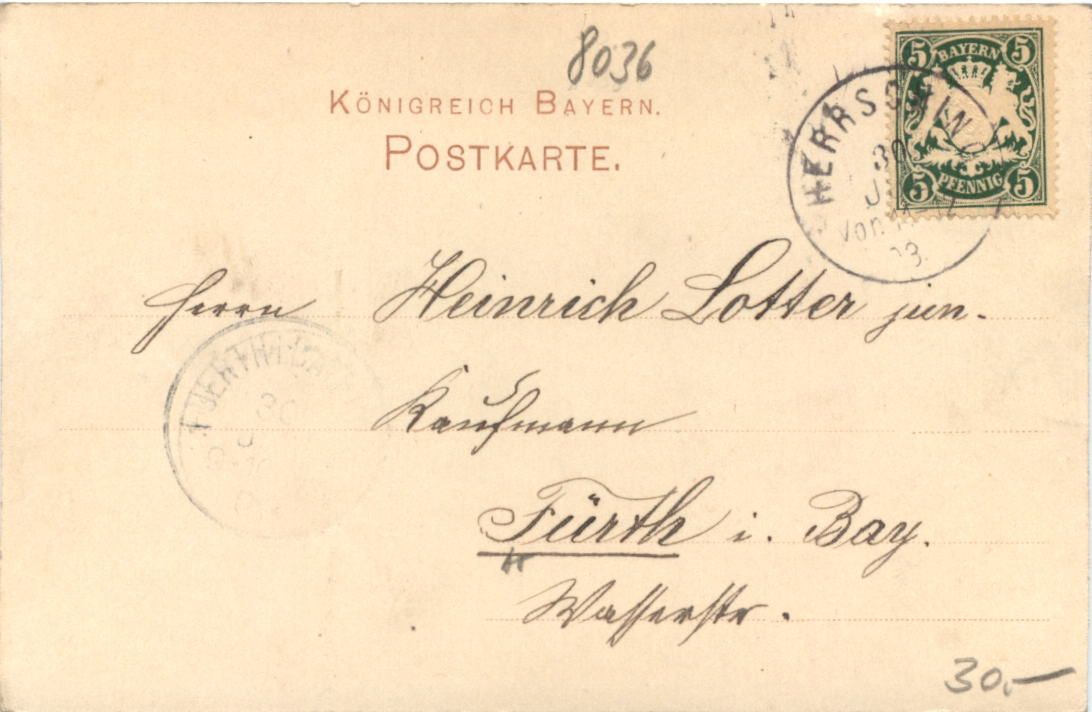 8036
KÖNIGREICH BAYERN.
POSTKARTE.
5 BAYERN 5
5 PFENNIG 5
HERRSCHING
30
Herrn Heinrich Lotter jun.
Kaufmann
Fürth i. Bay.
Wasserstr.
FUERTH
30
30.-